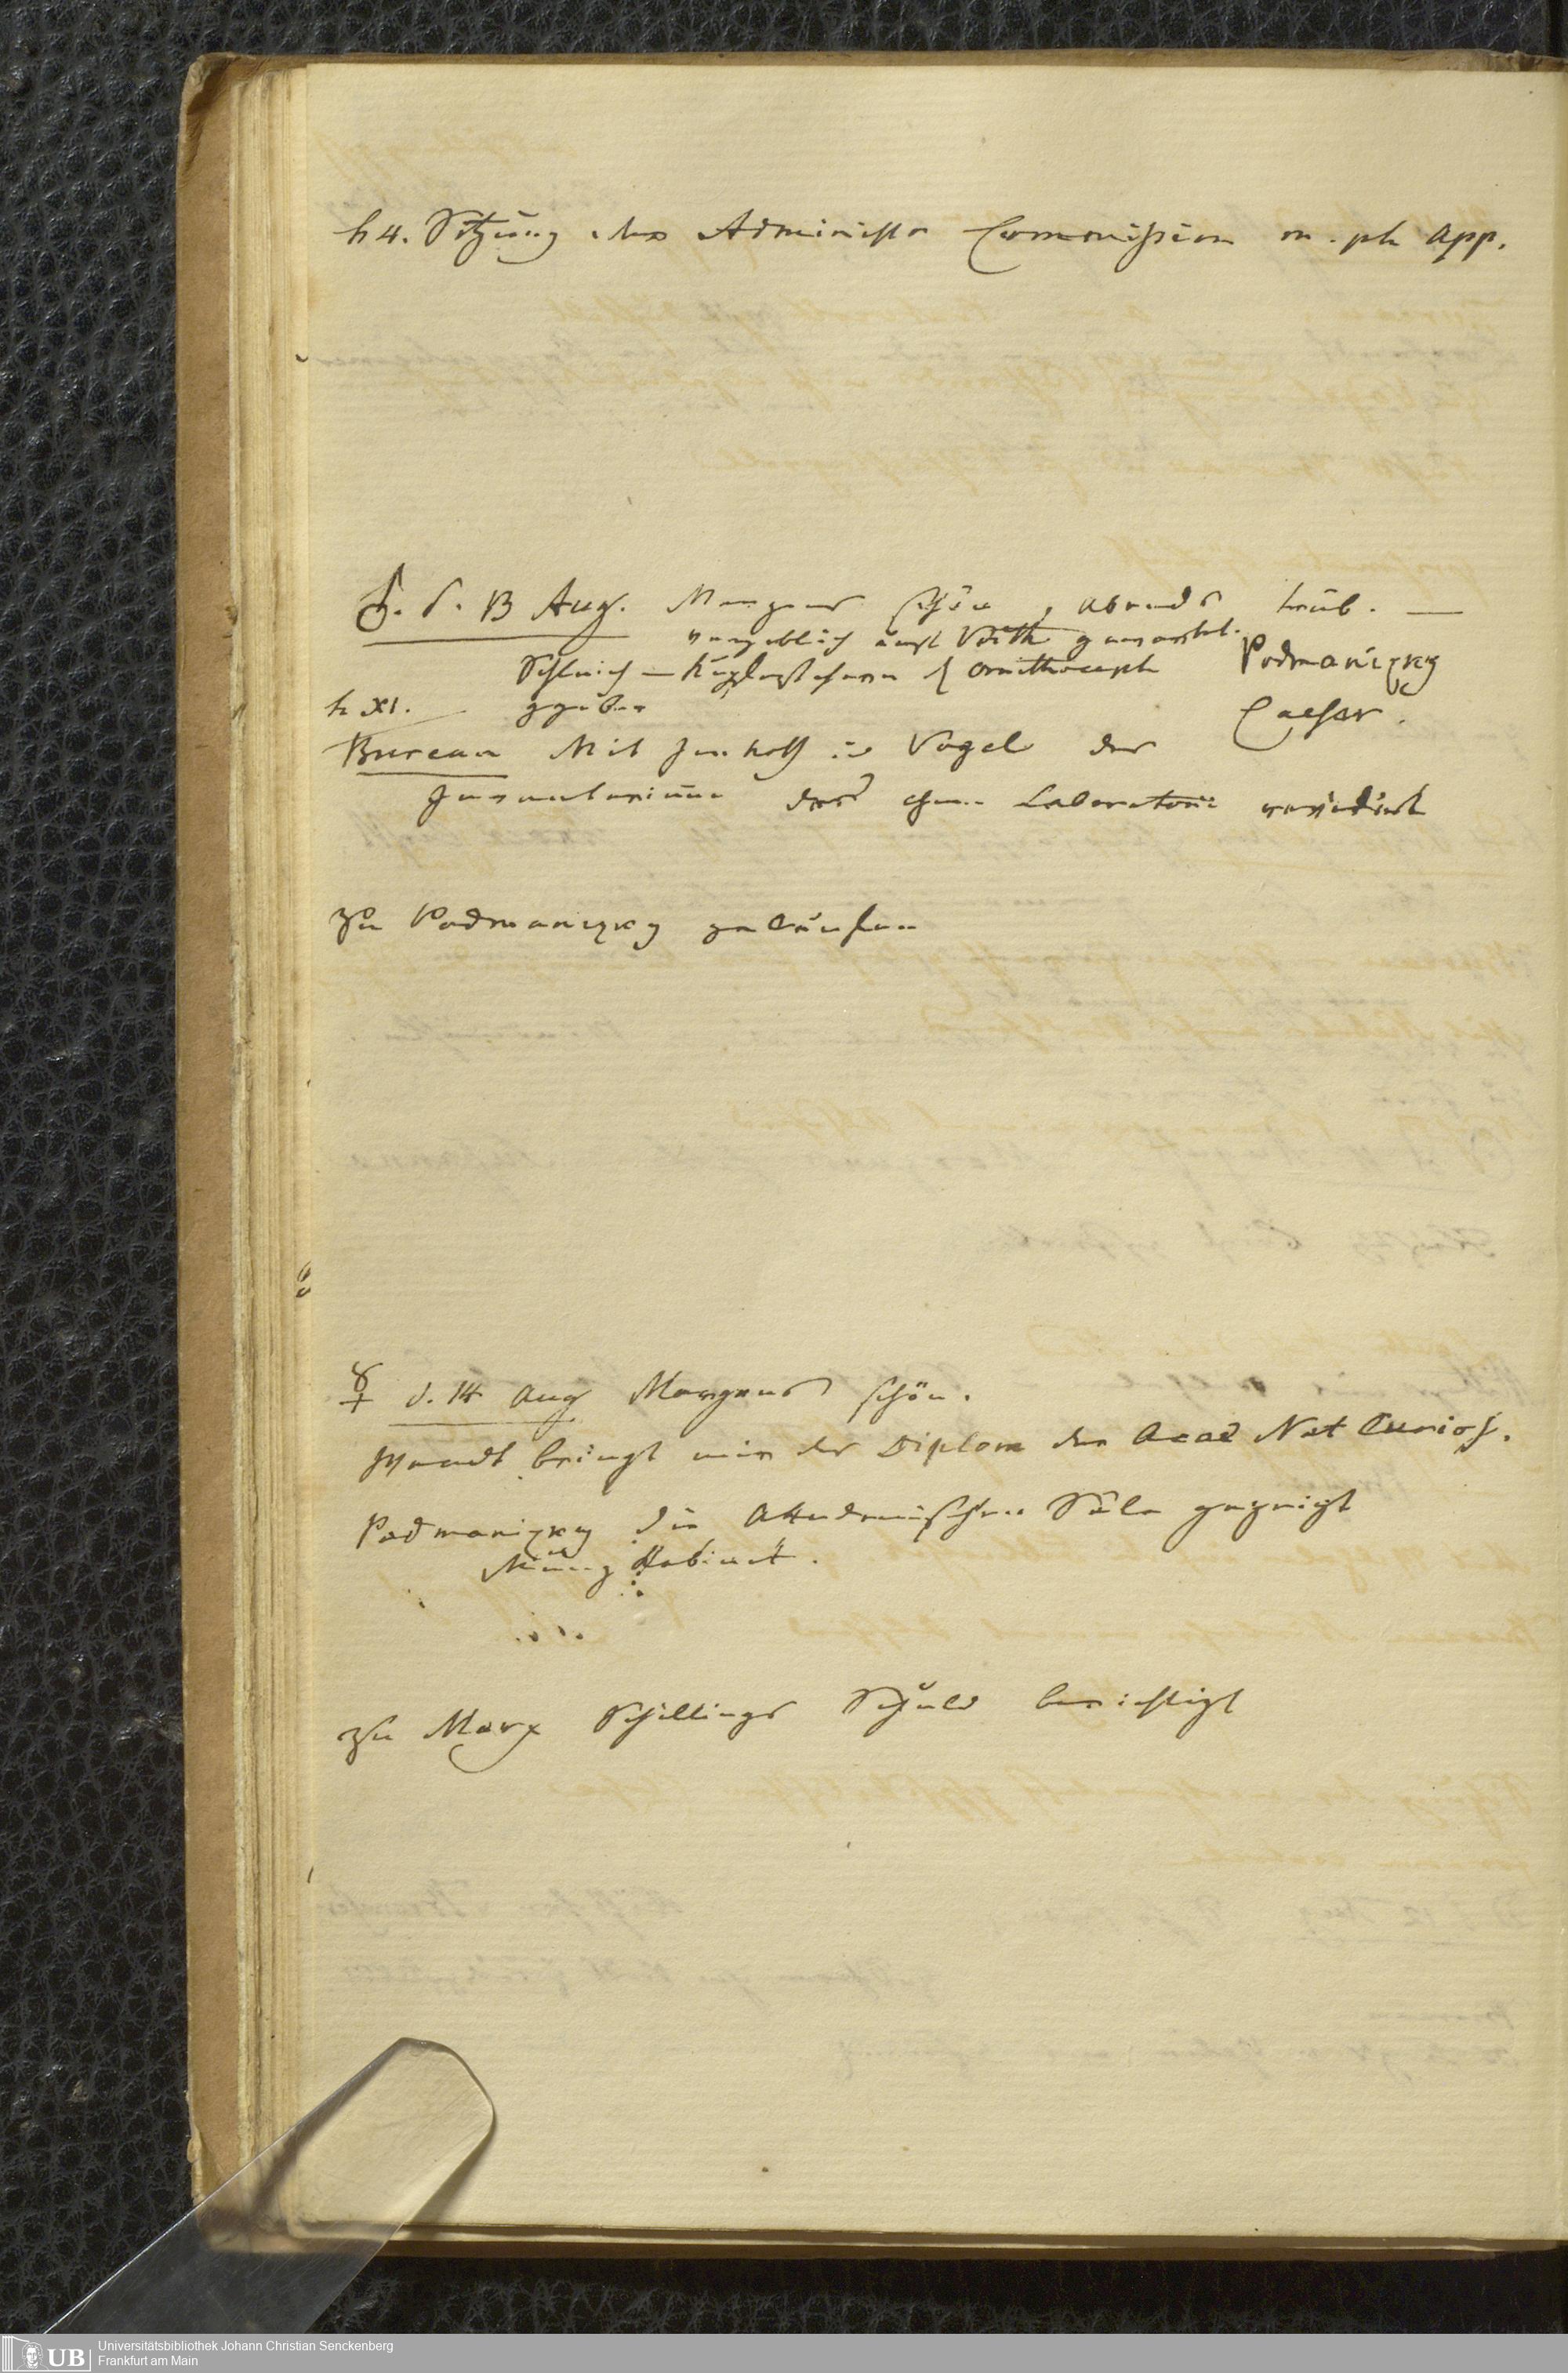 h 4. Sitzung der Administr Commission m. ph App.
♂. d. 13 Aug. Morgens schön, abends trüb. —
vergeblich auf Voith gewartet.
Schleich — Kupferstechern d Ornithoceph Podmanizky
h XI. gegeben Caesar.
Bureau Mit Imhoff u Vogel das
Inventarium des chem. Laboratorii revidirt
zu Podmanizky gelaufen
☿ d. 14 Aug Morgens schön.
bringt mir das Diplom der Acad Nat Curios.
Podmanizky die Akademischen Säle gezeigt
Münz Kabinet.
zu Marx Schillings Schuld berichtigt
UB
Universitätsbibliothek Johann Christian Senckenberg
Frankfurt am Main